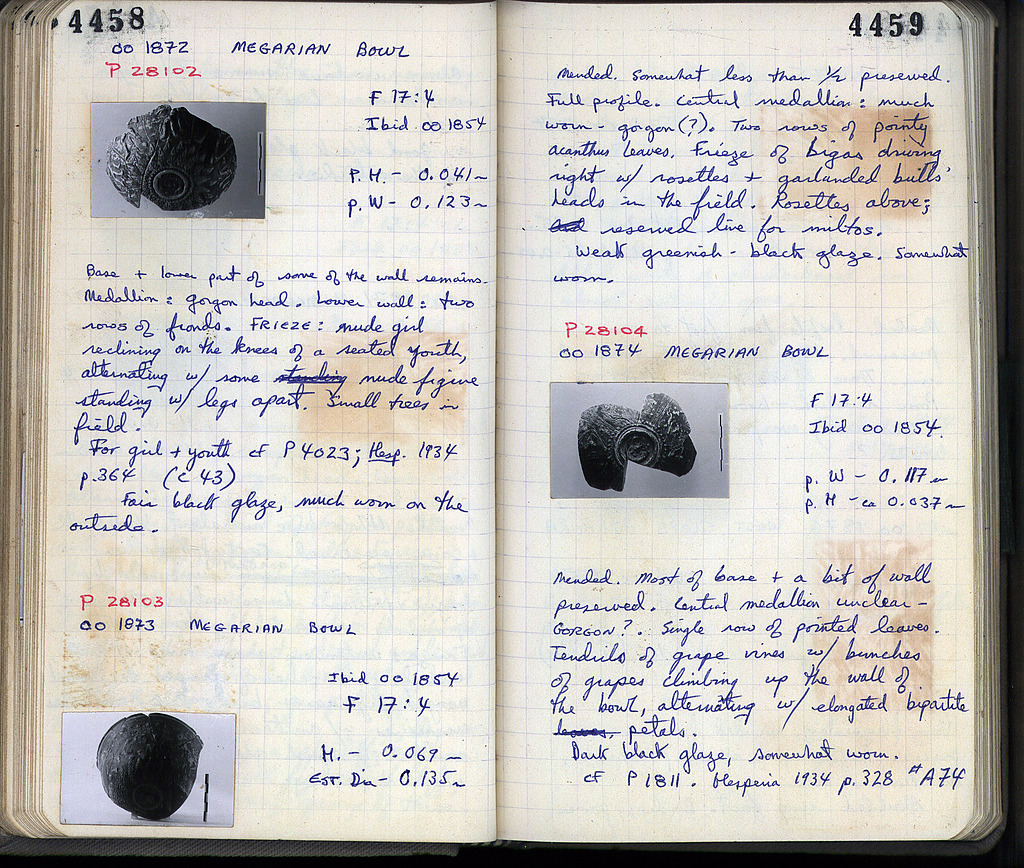 4458
OO 1872 MEGARIAN BOWL
P 28102
F 17:4
Ibid OO 1854
P.H. - 0.041 m
p. W - 0.123 m
Base + lower part of some of the wall remains.
Medallion: gorgon head. Lower wall: two
rows of fronds. FRIEZE: nude girl
reclining on the knees of a seated youth,
alternating w/ some standing nude figure
standing w/ legs apart. Small trees in
field.
For girl + youth cf P 4023; Hesp. 1934
p. 364 (C 43)
Fair black glaze, much worn on the
outside.
P 28103
OO 1873 MEGARIAN BOWL
Ibid OO 1854
F 17:4
H. - 0.069 m
EST. Dia - 0.135 m
4459
Mended. Somewhat less than 1/2 preserved.
Full profile. Central medallion: much
worn - gorgon (?). Two rows of pointy
acanthus leaves. Frieze of bigas driving
right w/ rosettes + garlanded bulls'
heads in the field. Rosettes above;
reserved line for miltos.
Weak greenish - black glaze. Somewhat
worn.
P 28104
OO 1874 MEGARIAN BOWL
F 17:4
Ibid OO 1854.
p. W - 0.117 m
p. H - ca 0.037 m
Mended. Most of base + a bit of wall
preserved. Central medallion unclear -
GORGON?. Single row of pointed leaves.
Tendrils of grape vines w/ bunches
of grapes climbing up the wall of
the bowl, alternating w/ elongated bipartite
leaves. petals.
Dark black glaze, somewhat worn.
cf P 1811. Hesperia 1934 p. 328 #A74